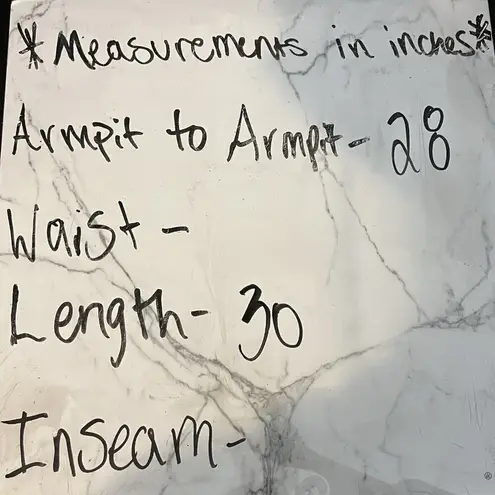 *Measurements in inches*
Armpit to Armpit- 28
Waist -
Length- 30
Inseam-